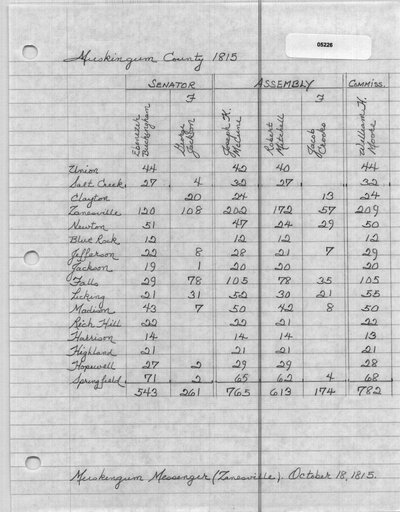 05226
Muskingum County 1815
SENATOR ASSEMBLY COMMISS.
F F
Ebenezer Buckingham
George Jackson
Joseph K. McCune
Robert Mitchell
Jacob Crooks
William H. Moore
Union 44 42 40 44
Salt Creek 27 4 32 27 32
Clayton 20 24 13 24
Zanesville 120 108 202 172 57 209
Newton 51 47 24 29 50
Blue Rock 12 12 12 12
Jefferson 22 8 28 21 7 29
Jackson 19 1 20 20 20
Falls 29 78 105 78 35 105
Licking 21 31 52 30 21 55
Madison 43 7 50 42 8 50
Rich Hill 22 22 21 22
Harrison 14 14 14 13
Highland 21 21 21 21
Hopewell 27 2 29 29 28
Springfield 71 2 65 62 4 68
543 261 765 613 174 782
Muskingum Messenger (Zanesville). October 18, 1815.